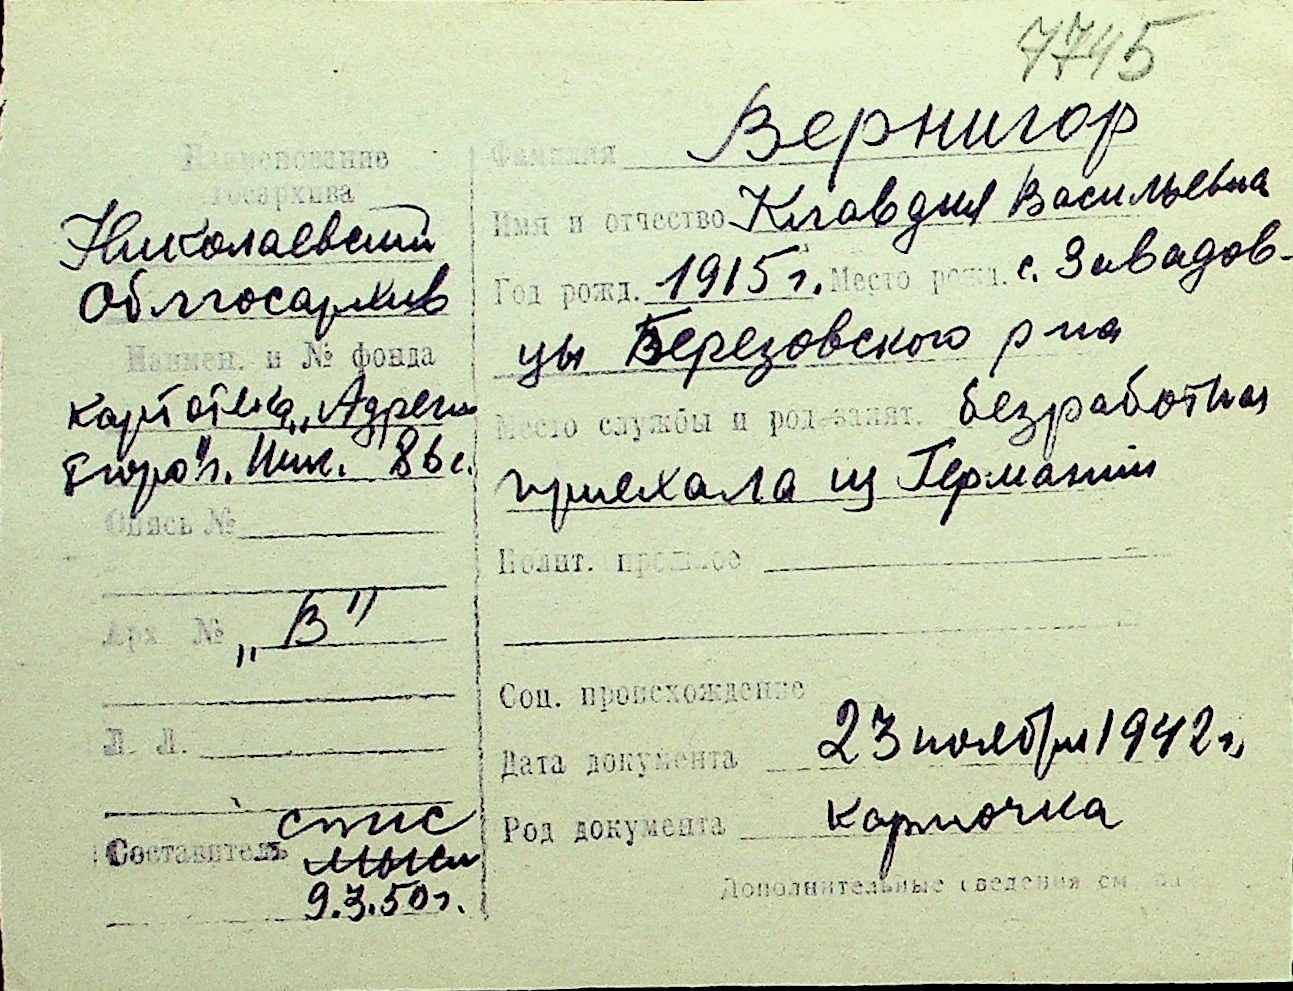 7745
Наименование
госархива
Николаевский
Облгосархив
Наимен. и № фонда
картотека „Адресн
бюро" г. Ник. 86 с.
Опись №
Арх №
„В"
Л. Л.
Составитель
спис
9.3.50 г.
Фамилия Вернигор
Имя и отчество Клавдия Васильевна
Год рожд. 1915 г. Место рожд. с. Завадов-
цы Березовского р-на
Место службы и род занят. безработная
приехала из Германии
Полит. прошлое
Соц. происхождение
Дата документа 23 ноября 1942 г.
Род документа карточка
Дополнительные сведения см